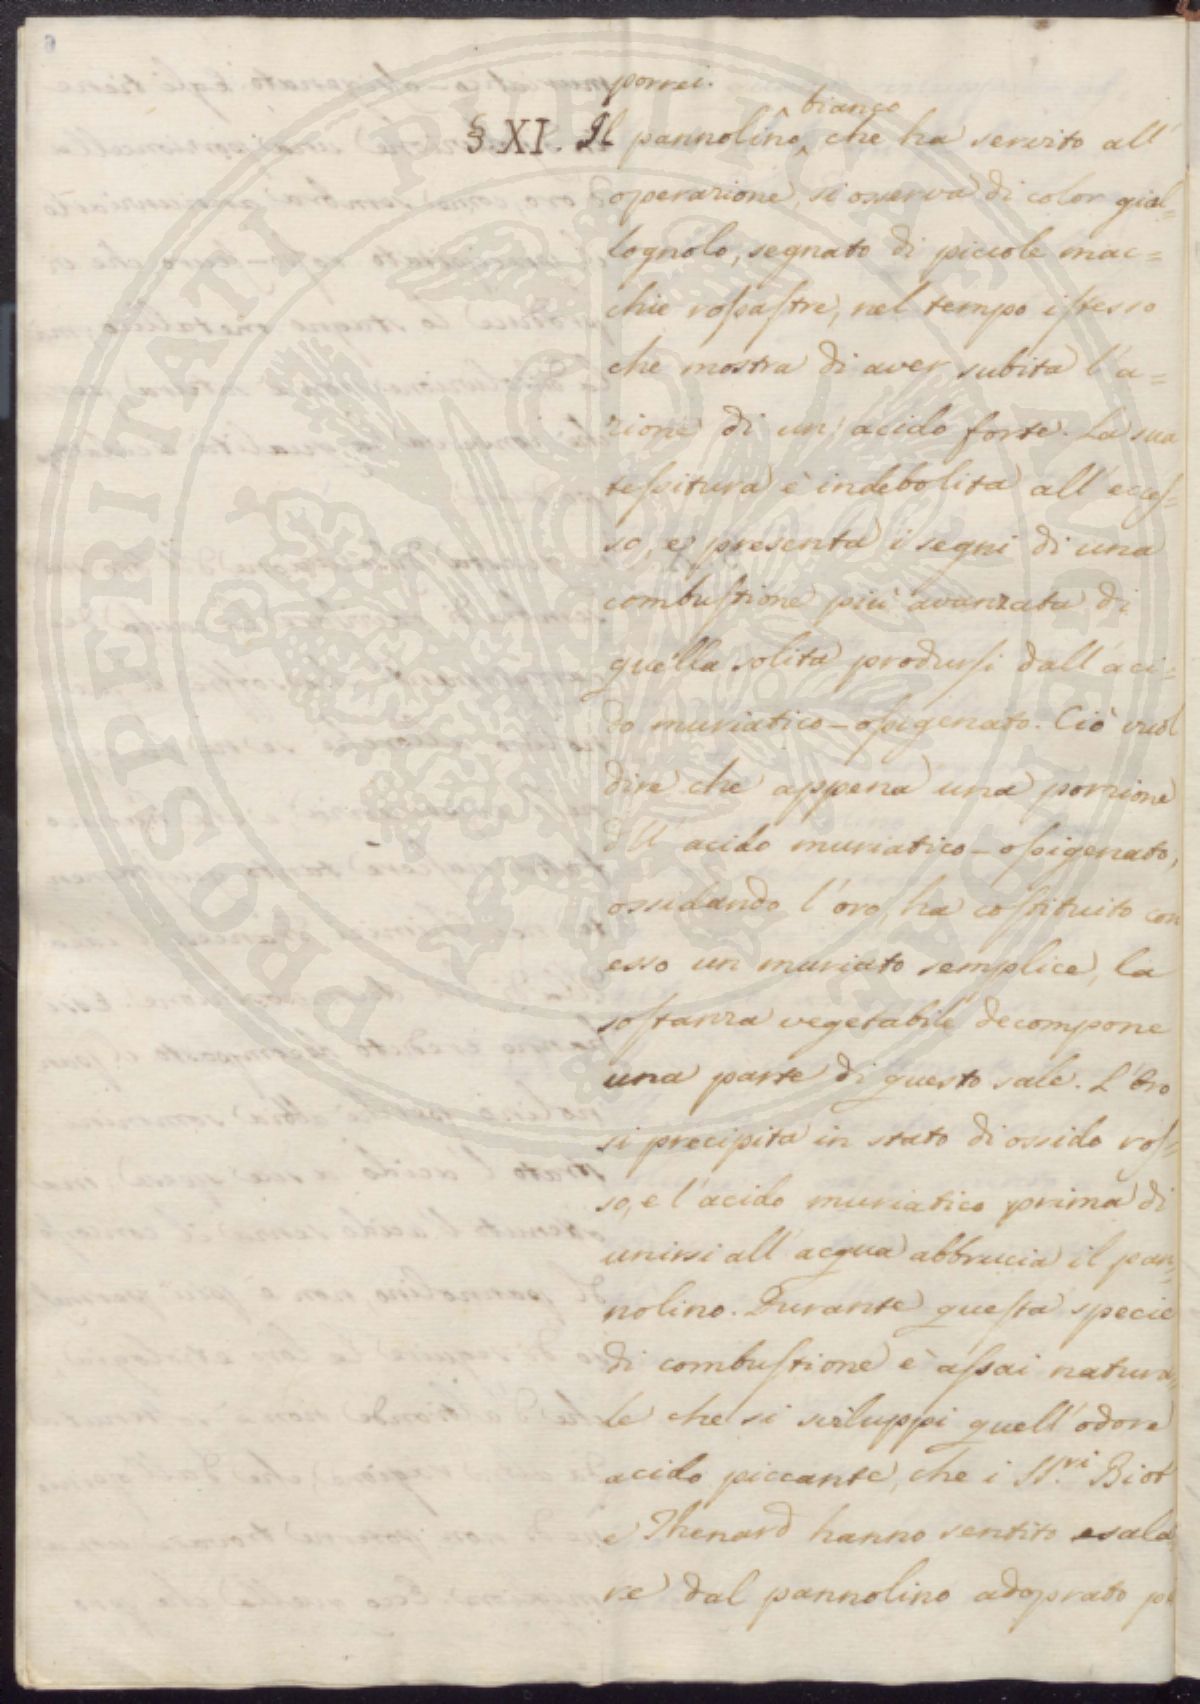 porrei.
bianco
§ XI. Il pannolino ^ che ha servito all'
operazione, si osserva di color gial=
lognolo, segnato di piccole mac=
chie rossastre, nel tempo istesso
che mostra di aver subita l'a=
zione di un acido forte. La sua
tessitura è indebolita all'ecces=
so, e presenta i segni di una
combustione più avanzata di
quella solita prodursi dall'aci=
do muriatico-ossigenato. Ciò vuol
dire che appena una porzione
dll' acido muriatico-ossigenato,
ossidando l'oro, ha costituito con
esso un muriato semplice, la
sostanza vegetabile decompone
una parte di questo sale. L'Oro
si precipita in stato di ossido ros=
so, e l'acido muriatico prima di
unirsi all'acqua abbrucia il pan=
nolino. Durante questa specie
di combustione è assai natura=
le che si sviluppi quell'odore
acido piccante, che i SS.ri Biot
e Thenard hanno sentito esala
re dal pannolino adoprato
PROSPERITATI PVBLICAE